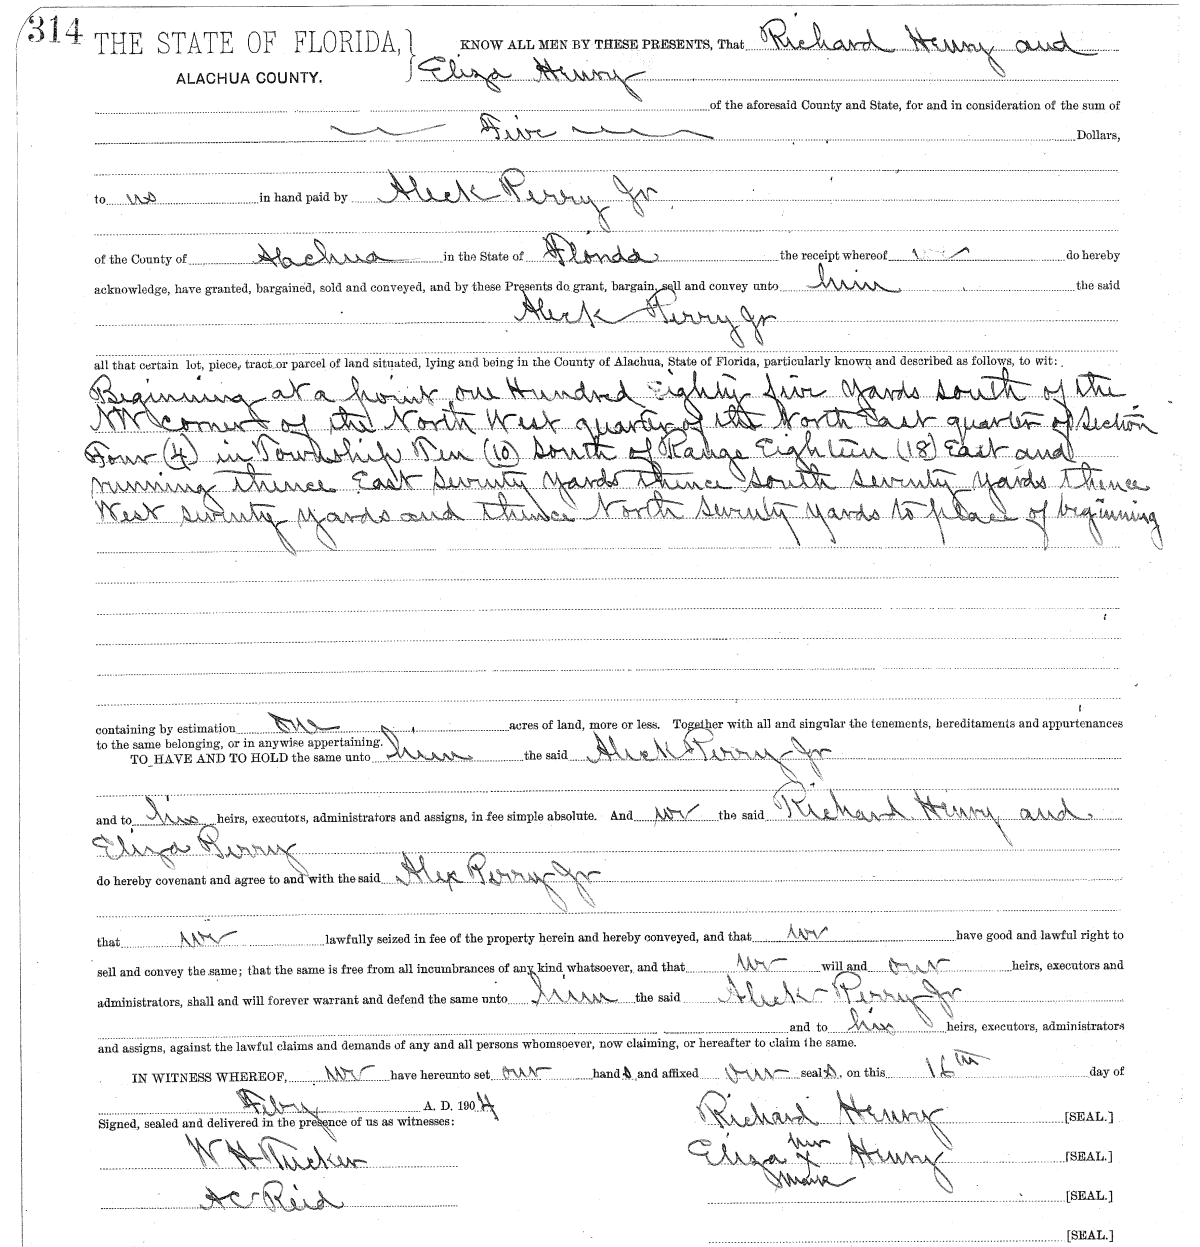 314
THE STATE OF FLORIDA,
ALACHUA COUNTY.
KNOW ALL MEN BY THESE PRESENTS, That Richard Henry and
Eliza Henry
of the aforesaid County and State, for and in consideration of the sum of
Five Dollars,
to us in hand paid by Aleck Perry Jr
of the County of Alachua in the State of Florida the receipt whereof we do hereby
acknowledge, have granted, bargained, sold and conveyed, and by these Presents do grant, bargain, sell and convey unto him the said
Aleck Perry Jr
all that certain lot, piece, tract or parcel of land situated, lying and being in the County of Alachua, State of Florida, particularly known and described as follows, to wit:
Beginning at a point one Hundred Eighty five yards south of the
NW corner of the North West quarter of the North East quarter of Section
Four (4) in Township Ten (10) South of Range Eighteen (18) East and
running thence East seventy yards thence south seventy yards thence
West seventy yards and thence North seventy yards to place of beginning
containing by estimation one acres of land, more or less. Together with all and singular the tenements, hereditaments and appurtenances
to the same belonging, or in anywise appertaining.
TO HAVE AND TO HOLD the same unto him the said Aleck Perry Jr
and to his heirs, executors, administrators and assigns, in fee simple absolute. And we the said Richard Henry and
Eliza Perry
do hereby covenant and agree to and with the said Alex Perry Jr
that we lawfully seized in fee of the property herein and hereby conveyed, and that we have good and lawful right to
sell and convey the same; that the same is free from all incumbrances of any kind whatsoever, and that we will and our heirs, executors and
administrators, shall and will forever warrant and defend the same unto him the said Aleck Perry Jr
and to his heirs, executors, administrators
and assigns, against the lawful claims and demands of any and all persons whomsoever, now claiming, or hereafter to claim the same.
IN WITNESS WHEREOF, we have hereunto set our hands and affixed our seals, on this 16th day of
Feby A. D. 1904
Signed, sealed and delivered in the presence of us as witnesses:
Richard Henry [SEAL.]
W H Tucker
Eliza her x mark Henry [SEAL.]
A C Reid
[SEAL.]
[SEAL.]